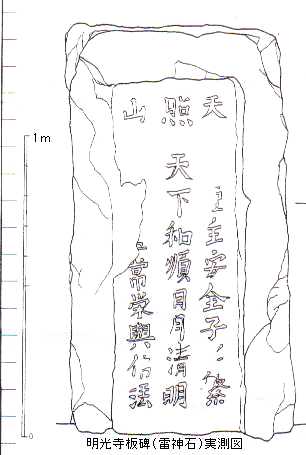 天照山
主安全子〻繁
天下和順日月清明
〻常榮興行法
1m
0
明光寺板碑(雷神石)実測図